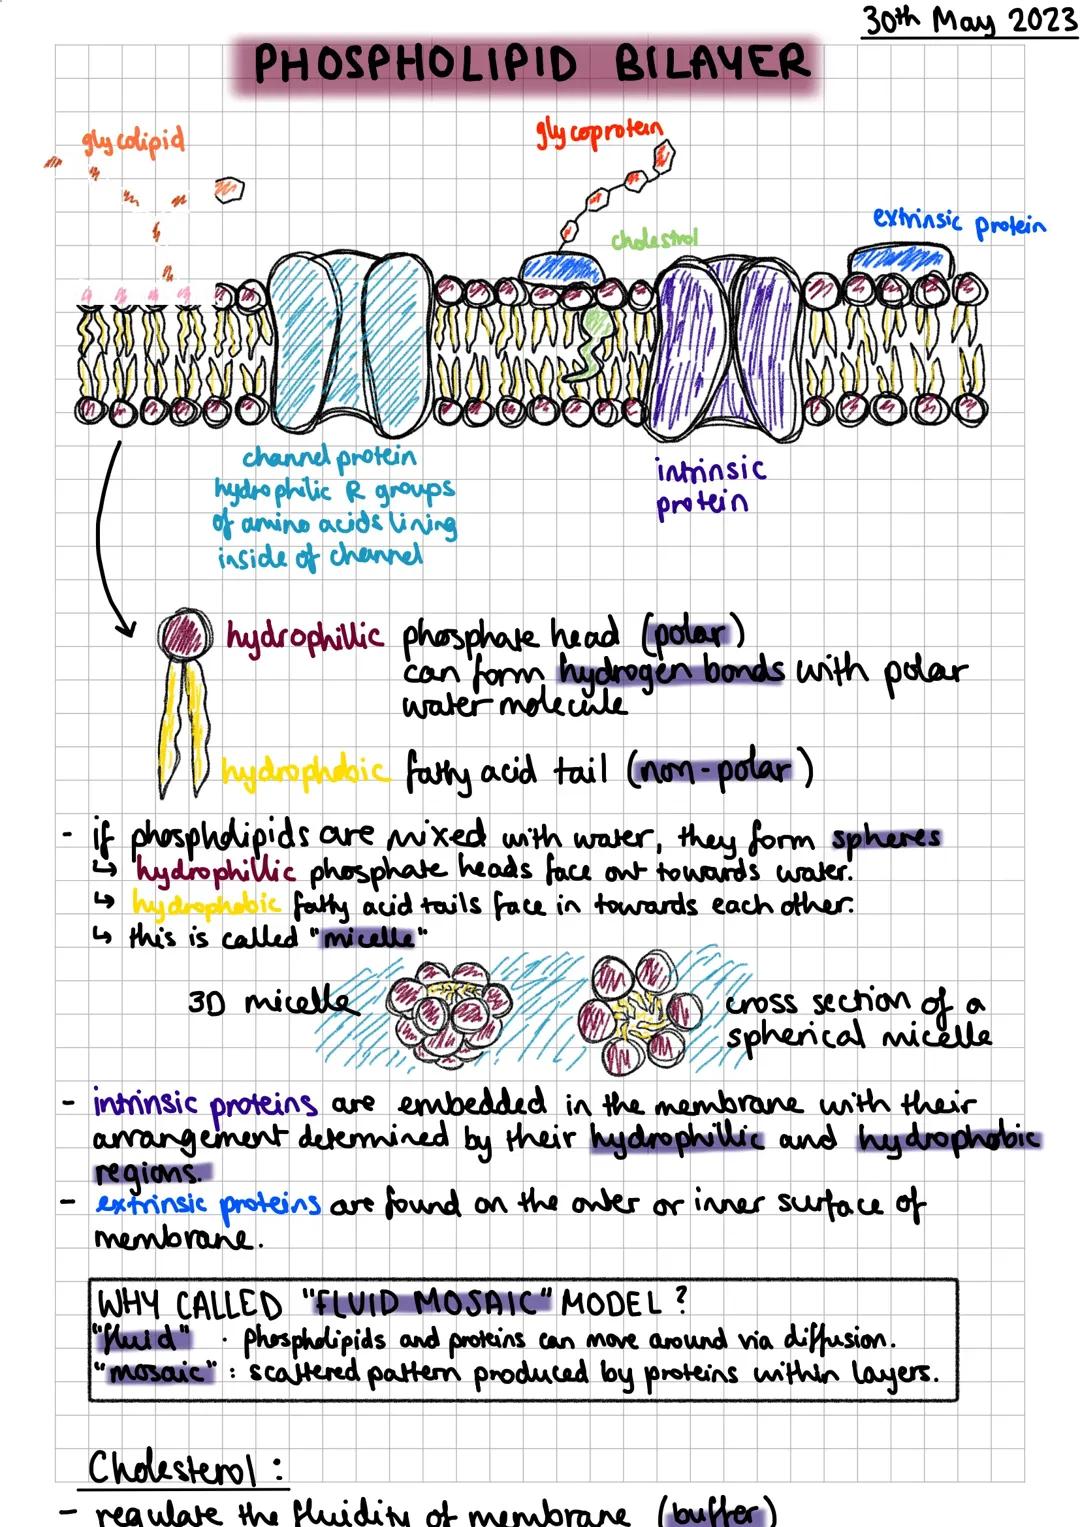 30th May 2023
PHOSPHOLIPID BILAYER
glycolipid
glycoprotein
cholestrol
extrinsic protein
channel protein
hydrophilic R groups
of amino acids lining
inside of channel
intrinsic
protein
hydrophillic phosphate head (polar)
can form hydrogen bonds with polar
water molecule
hydrophobic fatty acid tail (non-polar)
- if phospholipids are mixed with water, they form spheres
↳ hydrophillic phosphate heads face out towards water.
↳ hydrophobic fatty acid tails face in towards each other.
↳ this is called "micelle"
3D micelle
cross section of a
spherical micelle
- intrinsic proteins are embedded in the membrane with their
arrangement determined by their hydrophillic and hydrophobic
regions.
- extrinsic proteins are found on the outer or inner surface of
membrane.
WHY CALLED "FLUID MOSAIC" MODEL?
"fluid" · Phospholipids and proteins can move around via diffusion.
"mosaic" : scattered pattern produced by proteins within layers.
Cholesterol :
- regulate the fluidity of membrane (buffer)